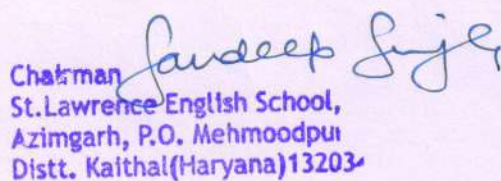 Sandeep Singh
Chairman
St.Lawrence English School,
Azimgarh, P.O. Mehmoodpur
Distt. Kaithal(Haryana)13203